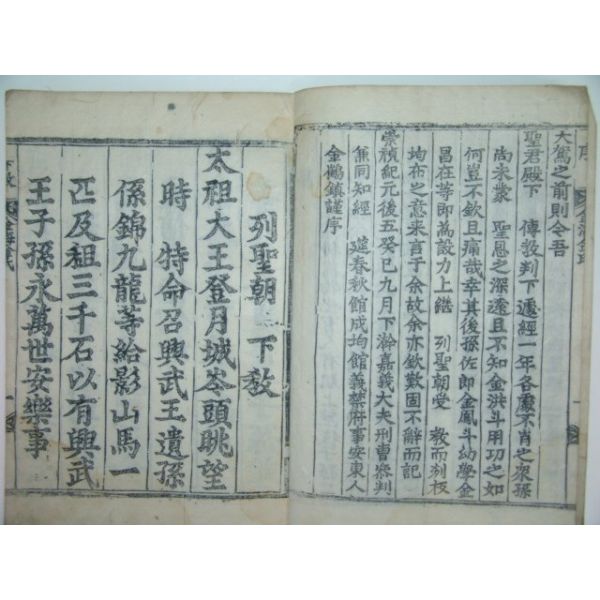 大駕之前則令吾
聖君殿下　傳敎判下遞經一年各處不肖之衆孫
尙未蒙　聖恩之深遠且不知金洪斗用功之如
何豈不欽且痛哉幸其後孫佐郞金鳳斗幼學金
昌在等卽爲設力上繼　列聖朝受　敎而刻板
均布之意來言于余故余亦欽歎固不辭而記
崇禎紀元後五癸巳九月下澣嘉義大夫刑曹參判
兼同知經　筵春秋館成均館義禁府事安東人
金鶴鎭謹序
列聖朝　下敎
太祖大王登月城岑頭眺望
時　特命召興武王遺孫
係錦九龍等給影山馬一
匹及租三千石以有興武
王子孫永萬世安樂事